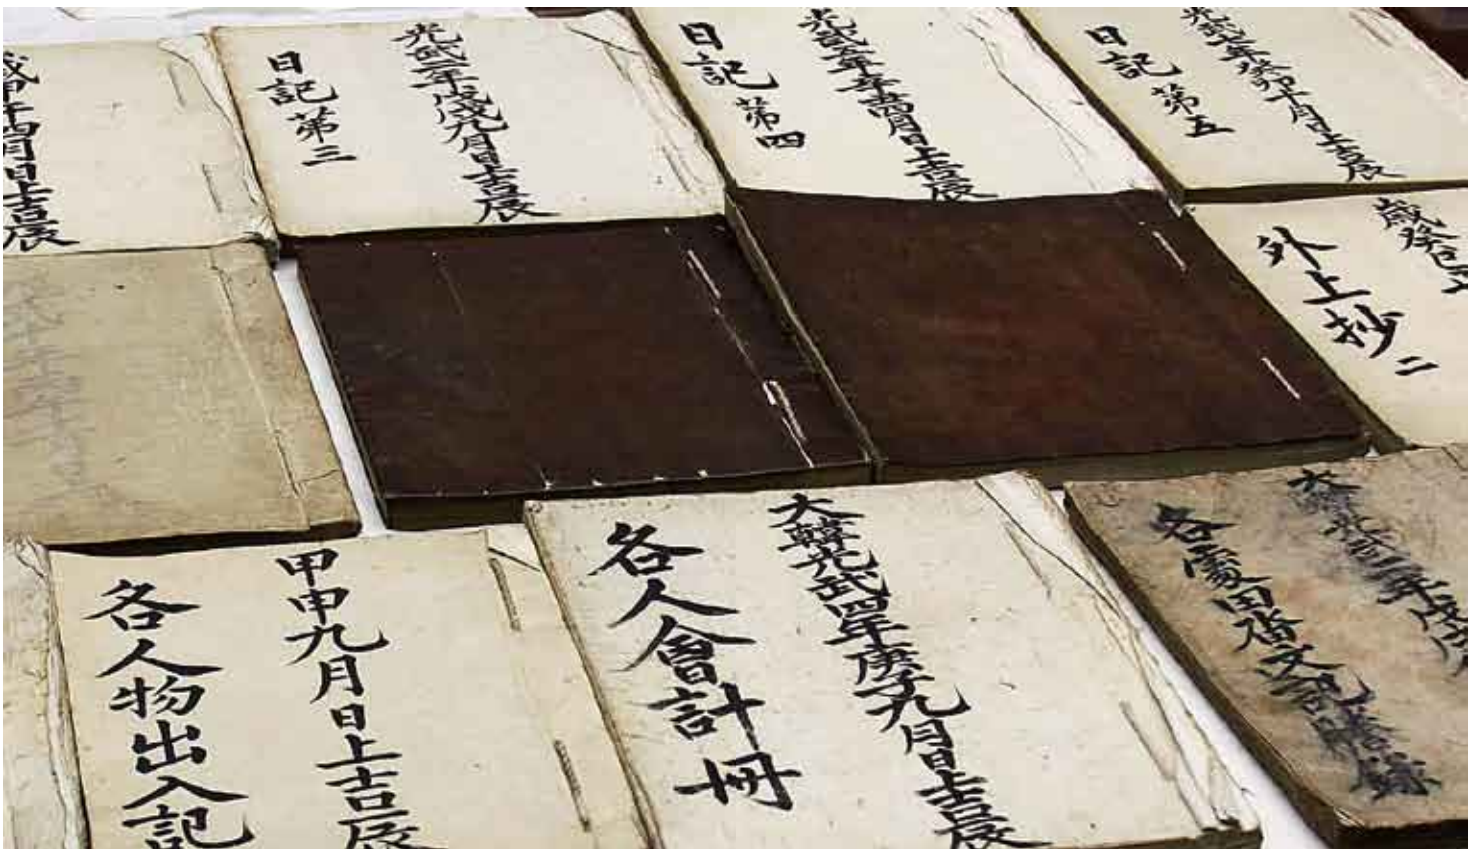 午四月日上吉辰
光武二年戊戌九月日上吉辰
日記 第三
光武五年辛丑四月日上吉辰
日記 第四
光武七年癸卯十月日上吉辰
日記 第五
歲癸巳
外上抄 二
甲申九月日上吉辰
各人物出入記
大韓光武四年庚子九月日上吉辰
各人會計冊
大韓光武二年戊戌
各處田畓文記謄錄